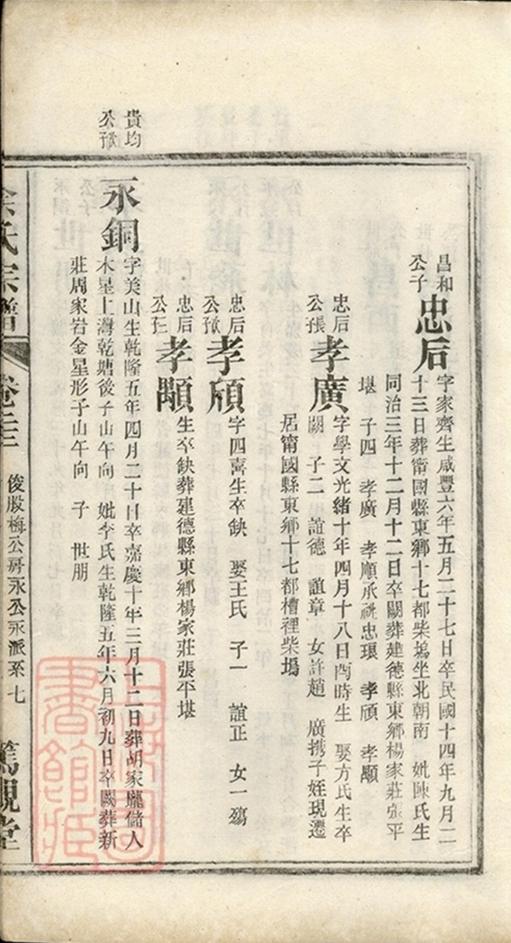 昌和
公子
忠后
字家齊生咸豐六年五月二十七日卒民國十四年九月二
十三日葬甯國縣東鄉十七都柴塢坐北朝南　妣陳氏生
同治三年十二月十二日卒闕葬建德縣東鄉楊家莊張平
堪　子四　孝廣　孝順承祧忠環　孝頎　孝顒
忠后
公長
孝廣
字學文光緒十年四月十八日酉時生　娶方氏生卒
闕　子二　誼德　誼章　女許趙　廣携子姪現遷
居甯國縣東鄉十七都槽裡柴塢
忠后
孝頎
字四喜生卒缺　娶王氏　子一　誼正　女一殤
忠后
孝顒
生卒缺葬建德縣東鄉楊家莊張平堪
貴均
永銅
字美山生乾隆五年四月二十日卒嘉慶十年三月十二日葬胡家隴儲人
木星上灣乾塘後子山午向　妣李氏生乾隆五年六月初九日卒闕葬新
莊周家岩金星形子山午向　子　世朋
氏宗譜
俊股梅公房永公永派系　七
篤親堂